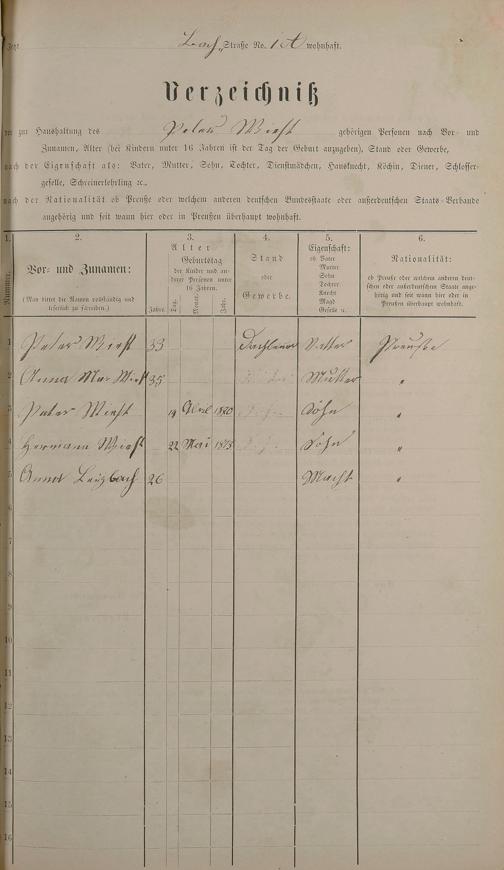 Jetzt Bach Straße No. 1 A wohnhaft.
Verzeichniß
der zur Haushaltung des Peter gehörigen Personen nach Vor- und
Zunamen, Alter (bei Kindern unter 16 Jahren ist der Tag der Geburt anzugeben), Stand oder Gewerbe,
nach der Eigenschaft als: Vater, Mutter, Sohn, Tochter, Dienstmädchen, Hausknecht, Köchin, Diener, Schlosser-
geselle, Schreinerlehrling ꝛc.,
nach der Nationalität ob Preuße oder welchem anderen deutschen Bundesstaate oder außerdeutschen Staats-Verbande
angehörig und seit wann hier oder in Preußen überhaupt wohnhaft.
1. 2. 3. 4. 5. 6.
Nummer.
Vor- und Zunamen:
(Man bittet die Namen vollständig und
leserlich zu schreiben.)
Alter
Geburtstag
der Kinder und an-
derer Personen unter
16 Jahren.
Jahre. Tag. Monat. Jahr.
Stand
oder
Gewerbe.
Eigenschaft:
ob Vater
Mutter
Sohn
Tochter
Knecht
Magd
Geselle u.
Nationalität:
ob Preuße oder welchem anderen deut-
schen oder außerdeutschen Staate ange-
hörig und seit wann hier oder in
Preußen überhaupt wohnhaft.
1 Peter 33 Vatter Preuße
2 Anna Mar 35 Mutter "
3 Peter 19 1880 Sohn "
4 Hermann 22 Mai Sohn "
5 Anna 26 Macht "
6
7
8
9
10
11
12
13
14
15
16